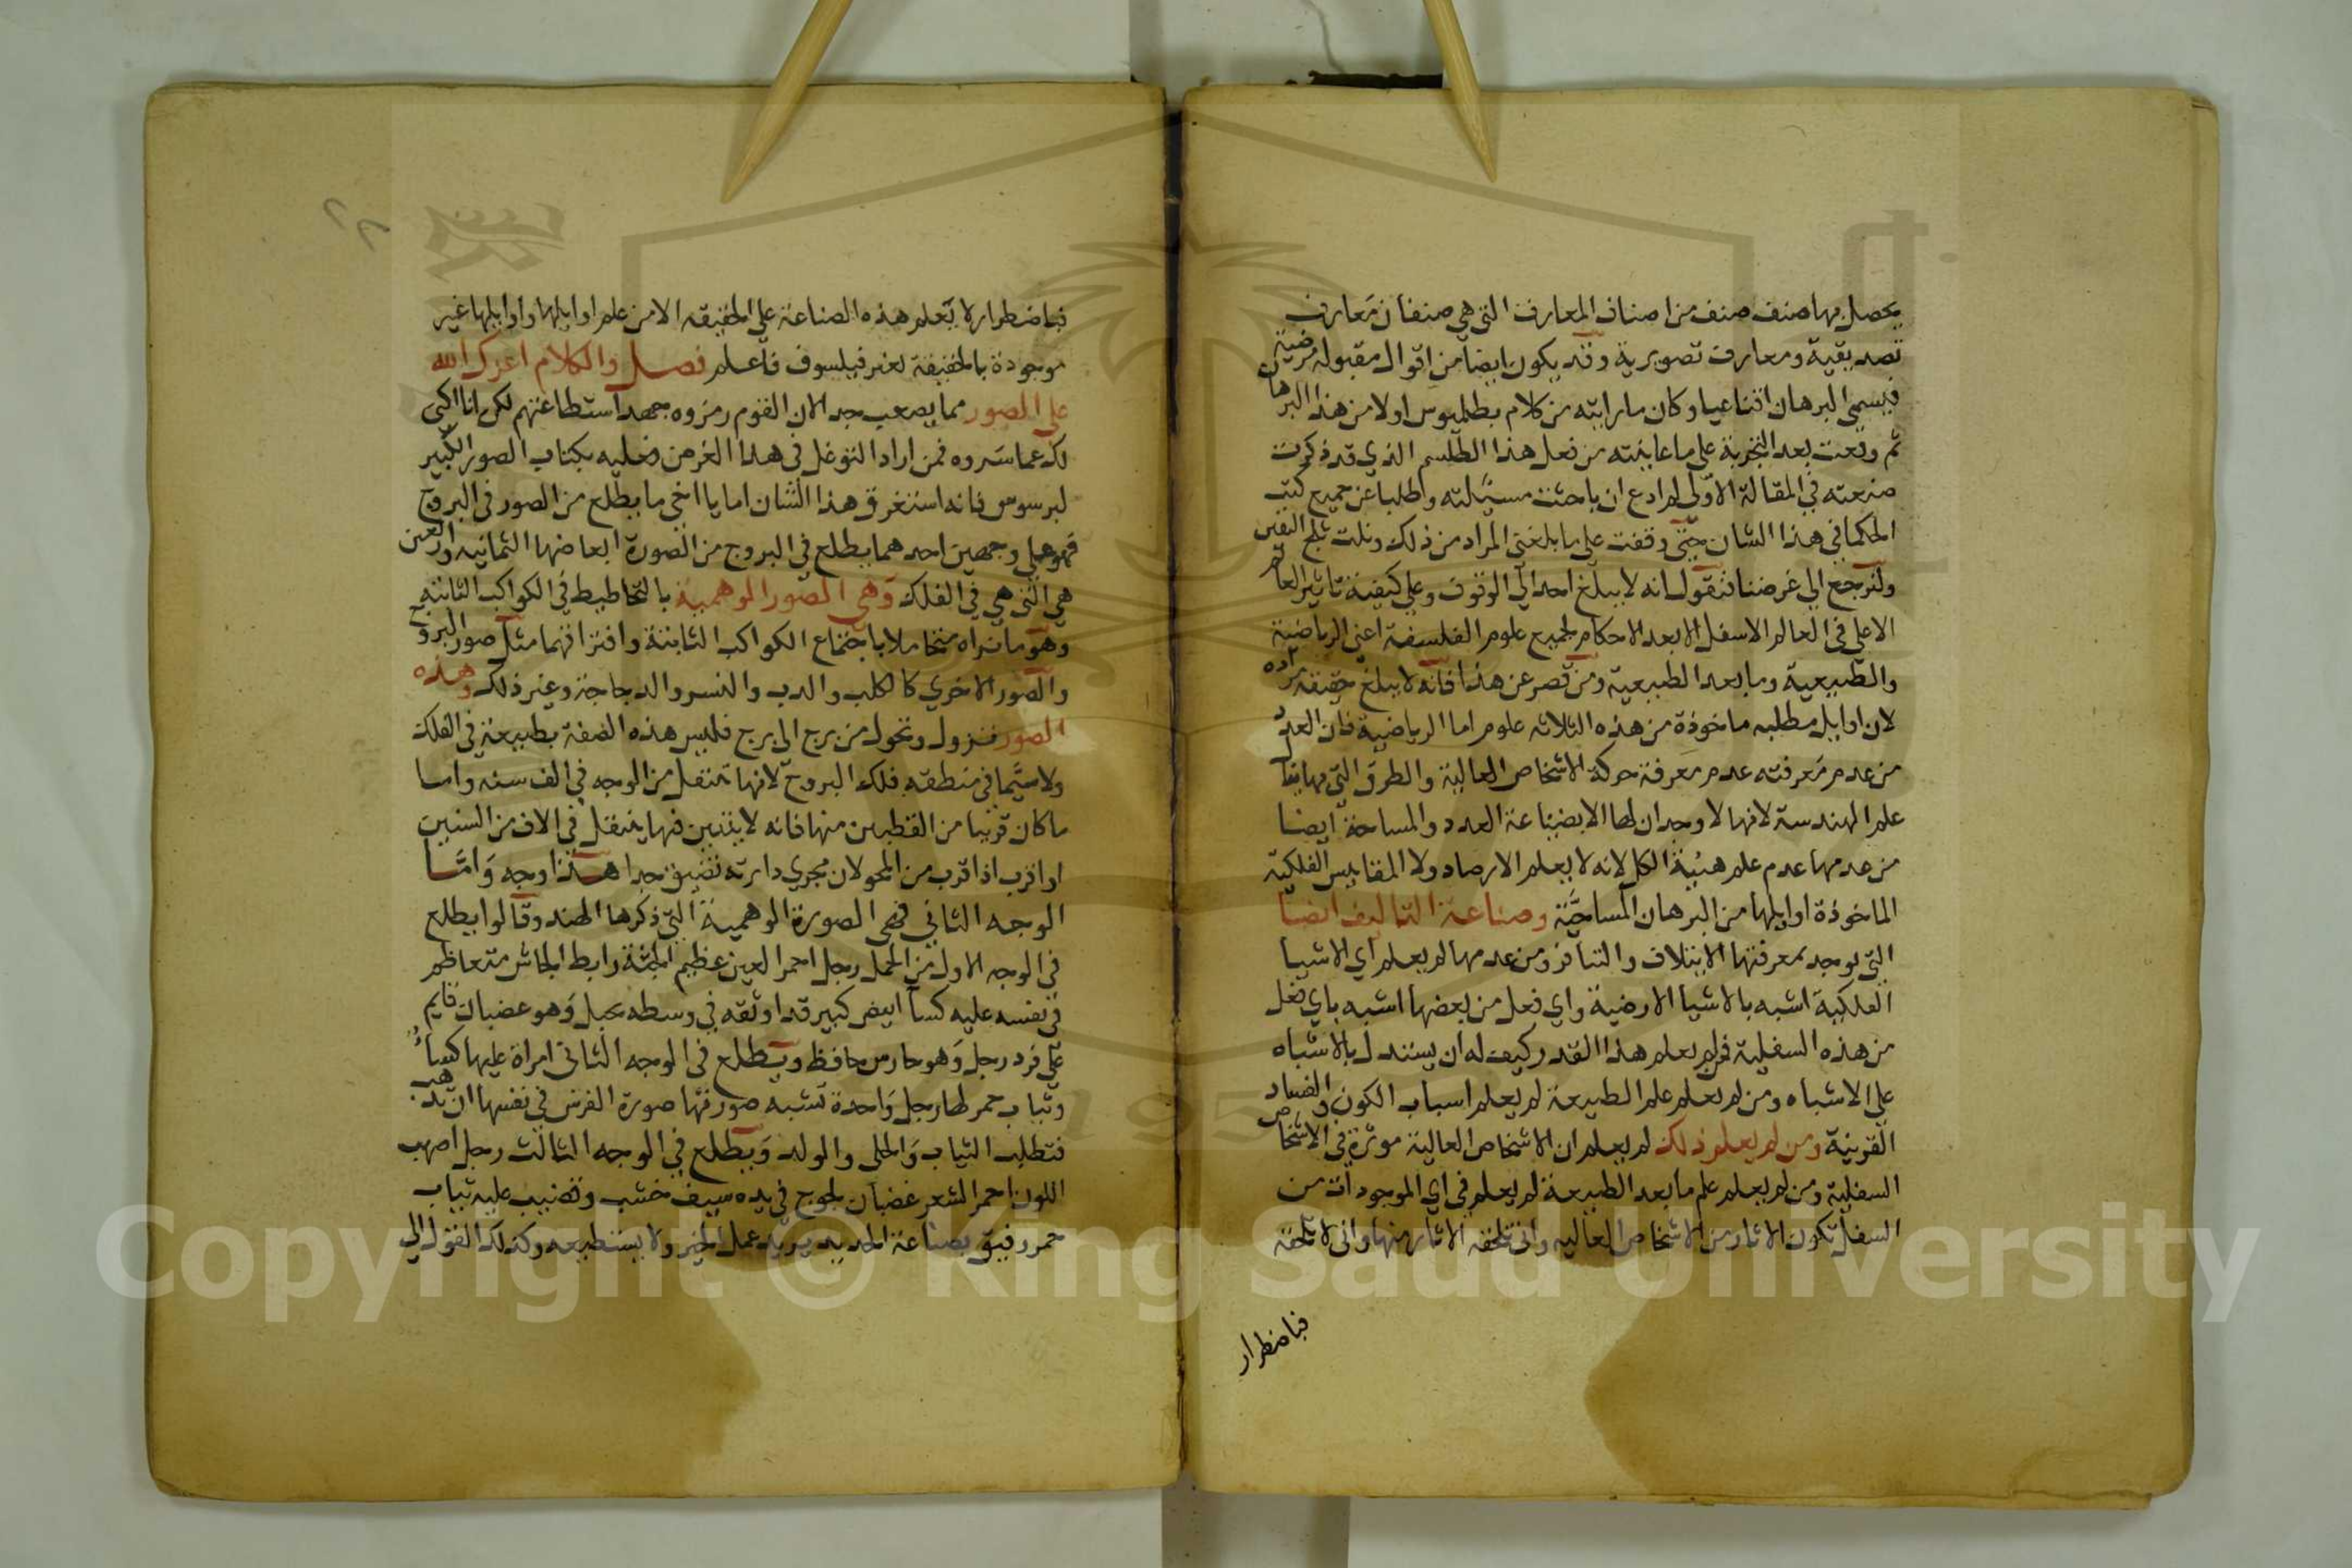 يحصل بها صنف صنف من اصناف المعارف التي هي صنفان معارف
تصديقية ومعارف تصورية وقد يكون ايضا من اقوال مقبوله مرضية
فيسمى البرهان اقناعيا وكان ما رايته من كلام بطلميوس اولا من هذا البرهان
ثم وقعت بعد التجربة على ما عاينته من فعل هذا الطلسم الذي قد ذكرت
صنعته في المقالة الاولى لم ادع ان باحثت مسيلته واطلبا عن جميع كتب
الحكما في هذا الشان حتى وقفت على ما بلغني المراد من ذلك ونلت ثلج اليقين
ولنرجع الي غرضنا فنقول انه لا يبلغ احد الي الوقوف وعلي كيفية تاثير العالم
الاعلي في العالم الاسفل الا بعد الاحكام لجميع علوم الفلسفة اعني الرياضية
والطبيعية وما بعد الطبيعية ومن قصر عن هذا فانه لا يبلغ حقيقه مراده
لان اوايل مطلبه ماخوذة من هذه الثلاثه علوم اما الرياضية فان العدد
من عدم معرفته عدم معرفة حركة الاشخاص العالية والطرق التي بها ينال
علم الهندسة لانها لا وجدان لها الا بصناعة العدد والمساحة ايضا
من عدمها عدم علم هيئة الكل لانه لا يعلم الارصاد ولا المقاييس الفلكية
الماخوذة اوايلها من البرهان المساحية وصناعة التاليف ايضا
التي يوجد بمعرفتها الايتلاف والتنافر ومن عدمها لم يعلم اي الاشيا
الفلكية اشبه بالاشيا الارضية واي فعل من بعضها اشبه باي فعل
من هذه السفلية فمن لم يعلم هذا القدر كيف له ان يستدل بالاشباه
علي الاشباه ومن لم يعلم علم الطبيعة لم يعلم اسباب الكون والفساد
القرينة ومن لم يعلم ذلك لم يعلم ان الاشخاص العالية موثرة في الاشخاص
السفلية ومن لم يعلم علم ما بعد الطبيعة لم يعلم في اي الموجودات من
السفل تكون الاثار من الاشخاص العاليه واني تلحقه الاثار منها واني لا تلحقه
فباضطرار
فباضطرار لا يعلم هذه الصناعة على الحقيقه الا من علم اوايلها واوايلها غير
موجودة بالحقيقة لغير فيلسوف فاعلم فصل والكلام اعزك الله
علي الصور مما يصعب جدا لان القوم رمزوه جهد استطاعتهم لكن انا اكني
لك عما ستروه فمن اراد التوغل في هذا الغرض فعليه بكتاب الصور الكبير
لبرسوس فانه استغرق هذا الشان اما يا اخي ما يطلع من الصور في البروج
فهو علي وجهين احدهما يطلع في البروج من الصورة ابعاضها الثمانيه واربعين
هي التي هي في الفلك وهي الصور الوهمية بالتخاطيط في الكواكب الثابتة
وهو ما تراه متخاملا باجتماع الكواكب الثابتة وافتراقهما مثل صور البروج
والصور الاخري كالكلب والدب والنسر والدجاجة وغير ذلك وهذه
الصور تزول وتحول من برج الى برج فليس هذه الصفة بطبيعة في الفلك
ولا سيما في منطقه فلك البروج لانها تنتقل من الوجه في الف سنه واما
ما كان قريبا من القطبين منها فانه لا يتبين فيها ينتقل في الاف من السنين
او اقرب اذا قرب من المحو لان مجري دايرته تضيق جدا هذا وجه واما
الوجه الثاني فهي الصورة الوهمية التي ذكرها الهند وقالوا يطلع
في الوجه الاول من الحمل رجل احمر العين عظيم الجثة رابط الجاش متعاظم
في نفسه عليه كسا ابيض كبير قد اوثقه في وسطه بحبل وهو غضبان قايم
علي فرد رجل وهو حارس حافظ ويطلع في الوجه الثاني امراة عليها كساء
وثياب حمر لها رجل واحدة تشبه صورتها صورة الفرس في نفسها ان تذهب
فتطلب الثياب والحلى والولد ويطلع في الوجه الثالث رجل اصهب
اللون احمر الشعر غضبان لجوج في يده سيف خشب وقضيب عليه ثياب
حمر رفيق بصناعة الحديد يريد عمل الخير ولا يستطيعه وكذلك القول الي
Copyright © King Saud University